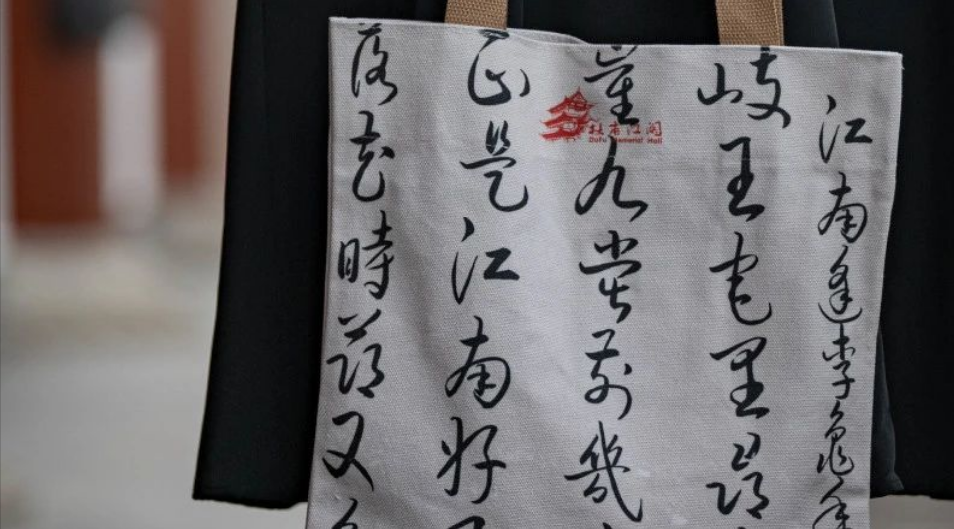 江南逢李龜年
岐王宅里尋
崔九堂前幾
正是江南好
落花時節又
杜甫江阁
DuFu Memorial Hall